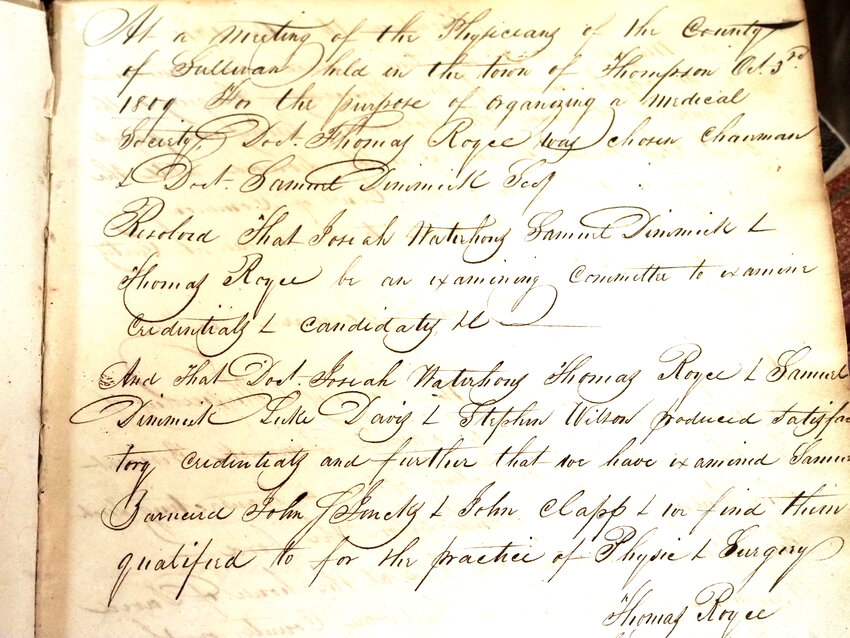 At a meeting of the Physicians of the County
of Sullivan held in the town of Thompson Oct. 3rd
1809 For the purpose of organizing a medical
Society, Doct. Thomas Royce was chosen Chairman
& Doct. Samuel Dimmick Secy
Resolved That Josiah Waterhous Samuel Dimmick &
Thomas Royce be an examining Committee to examine
Credentials & candidates &c
And That Doct. Josiah Waterhous Thomas Royce & Samuel
Dimmick Luke Davis & Stephen Wilson produced satisfac
tory credentials and further that we have examined Samuel
John & John Clapp & we find them
qualified to for the practice of Physic & Surgery
Thomas Royce